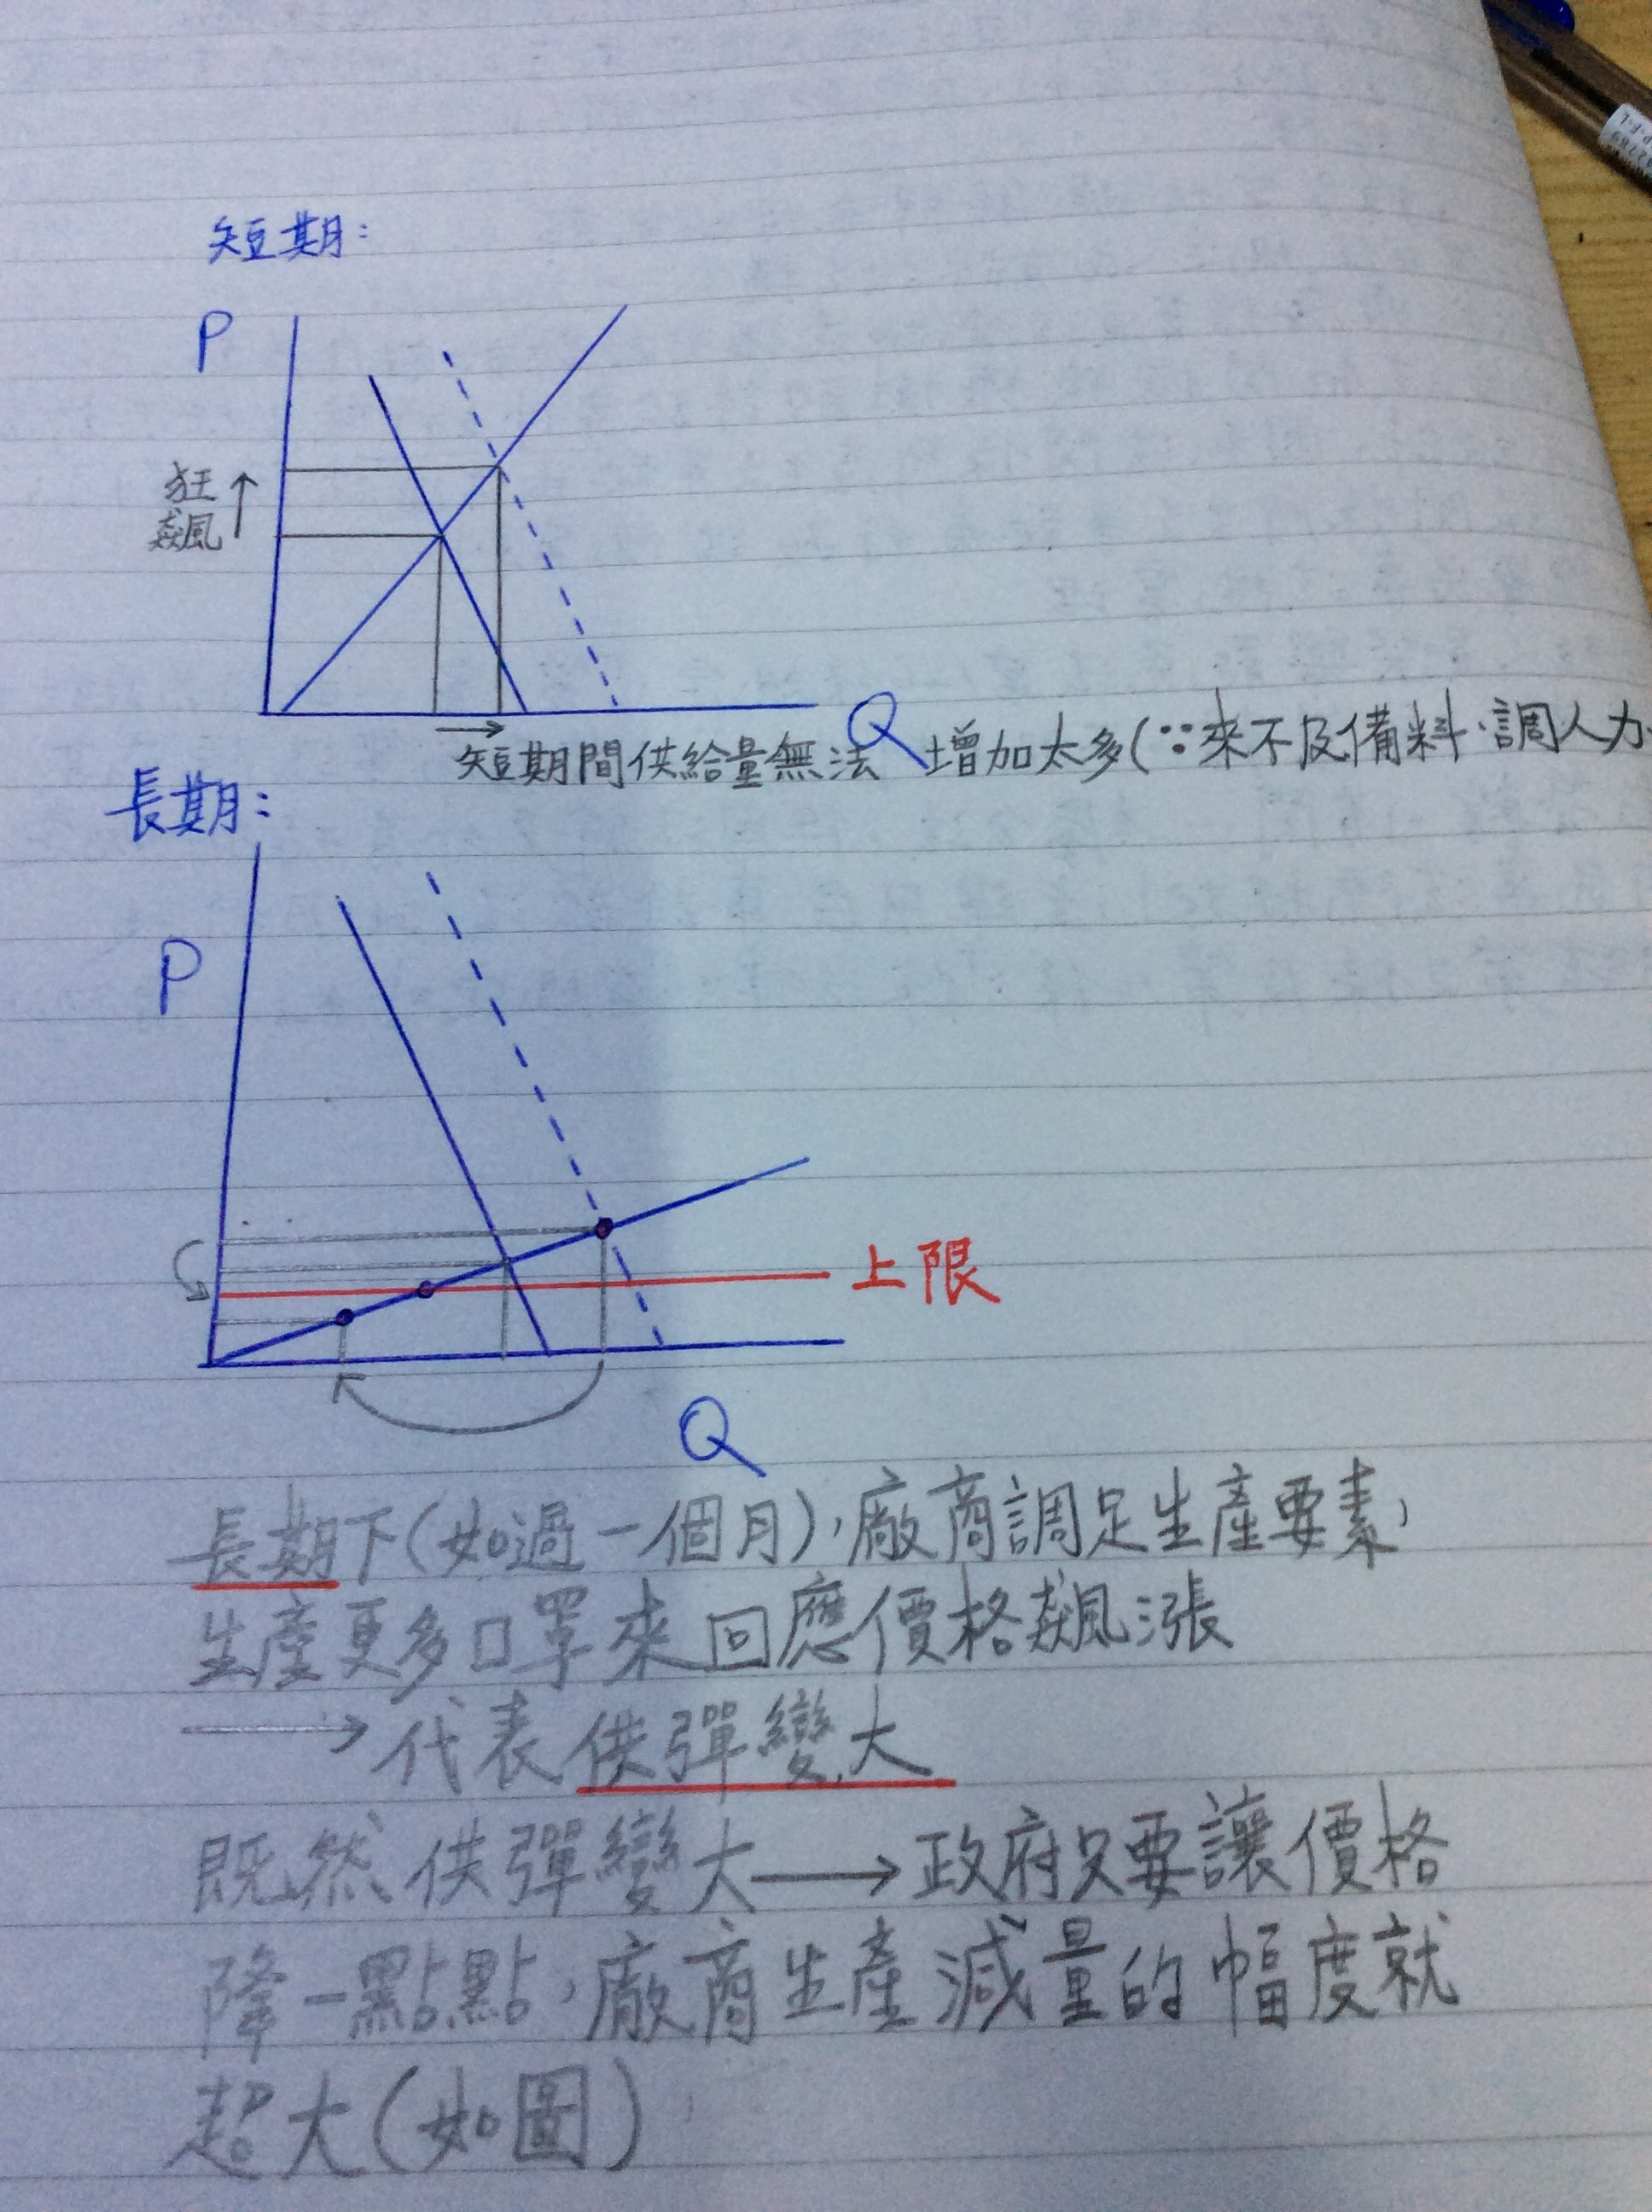 短期:
P
狂
飆
Q
短期間供給量無法增加太多(∵來不及備料、調人力
長期:
P
上限
Q
長期下(如過一個月),廠商調足生產要素,
生產更多口罩來回應價格飆漲
→代表供彈變大
既然供彈變大→政府只要讓價格
降一點點,廠商生產減量的幅度就
超大(如圖)